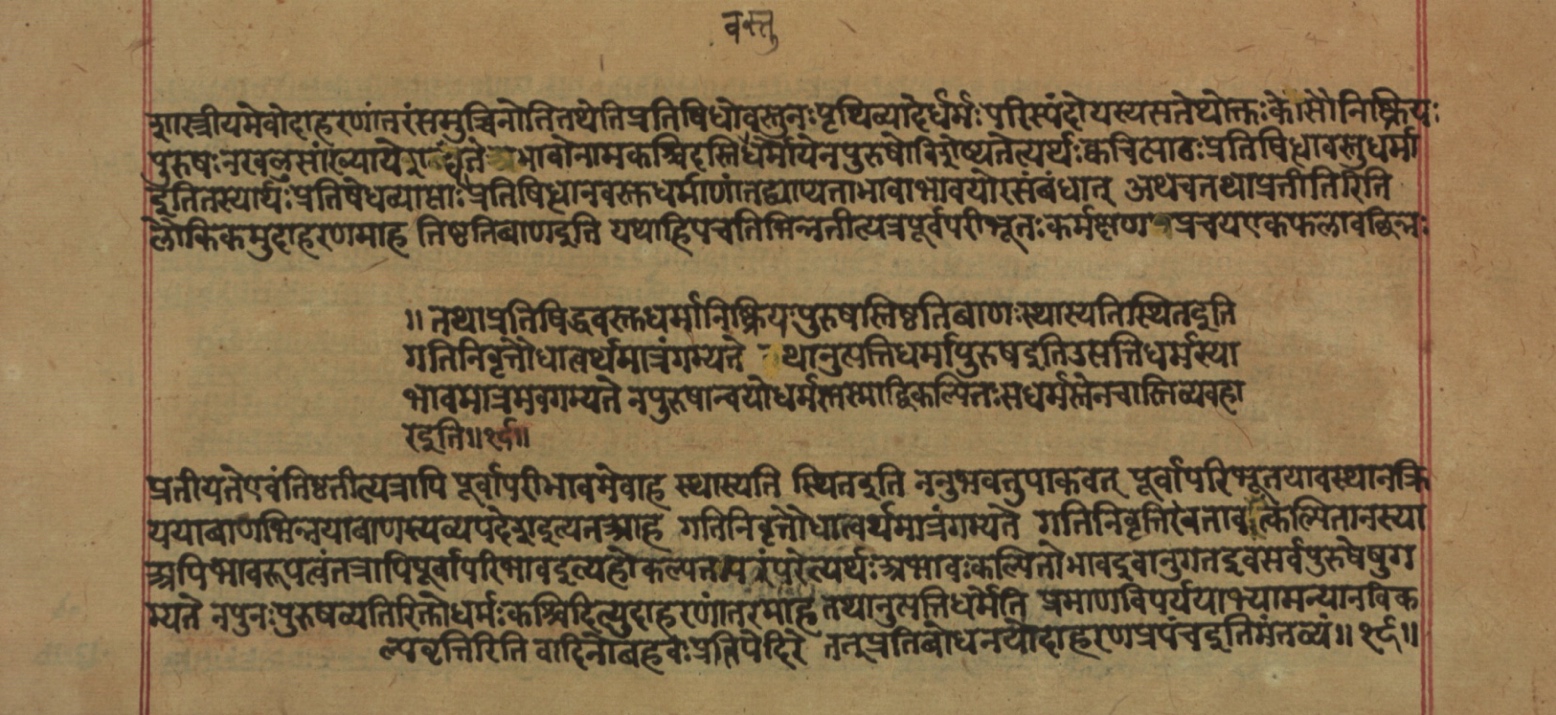 वस्तु
शास्त्रीयमेवोदाहरणांतरंसमुच्चिनोतितथेतिप्रतिषिधोवस्तुनःपृथिव्यादेर्धर्मःपरिस्पंदोयस्यसतेथोक्तःकोसौनिष्क्रियः
पुरुषःनखलुसांख्याये भावोनामकश्चिदस्तिधर्मोयेनपुरुषोविशेष्यतेत्यर्थःक्वचित्पाठःप्रतिषिधावस्तुधर्मा
इतितस्यार्थःप्रतिषेधव्याप्ताःप्रतिषिधानवस्तधर्माणांतद्व्याप्यताभावाभावयोरसंबंधात् अथचतथाप्रतीतिरिति
लौकिकमुदाहरणमाह तिष्ठतिबाणइति यथाहिपचतिभिन्नतीत्यत्रपूर्वपरीभूतःकर्मक्षण प्रचयएकफलावछिन्नः
॥ तथाप्रतिषिद्धवस्तधर्मानिष्क्रियःपुरुषस्तिष्ठतिबाणःस्थास्यतिस्थितइति
गतिनिवृत्तौधात्वर्थमात्रंगम्यते तथानुत्पत्तिधर्मापुरुषइतिउत्पत्तिधर्मस्या
भावमात्रमवगम्यते नपुरुषान्वयोधर्मस्तस्माद्विकल्पितःसधर्मस्तेनचास्तिव्यवहा
रइति॥१९॥
प्रतीयतेएवंतिष्ठतीत्यत्रापि पूर्वापरीभावमेवाह स्थास्यति स्थितइति ननुभवतुपाकवत् पूर्वापरिभूतयावस्थानक्रि
ययाबाणभिन्नयाबाणस्यव्यपदेशइत्यतआह गतिनिवृत्तौधात्वर्थमात्रंगम्यते गतिनिवृत्तिरेवताव त्कल्पितातस्या
अपिभावरूपत्वंतत्रापिपूर्वापरिभावइत्यहोकल्पनापरंपरेत्यर्थःअभावःकल्पितोभावइवानुगतइवसर्वपुरुषेषुग
म्यते नपुनःपुरुषव्यतिरिक्तोधर्मःकश्चिदित्युदाहरणांतरमाह तथानुत्पत्तिधर्मेति प्रमाणविपर्ययाभ्यामन्यानविक
ल्पवृत्तिरिति वादिनोबहवःप्रतिपेदिरे तत्प्रतिबोधनयोदाहरणप्रपंचइतिमंतव्यं॥१९॥